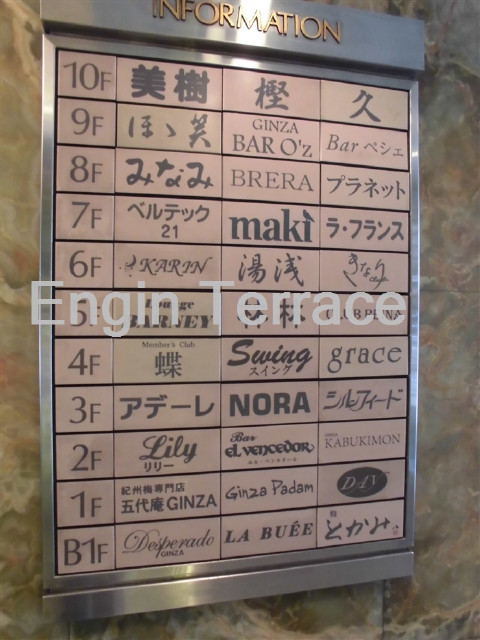 INFORMATION
10F 美樹 樫 久
9F ほゝ笑 GINZA BAR O'z Bar ペシェ
8F みなみ BRERA プラネット
7F ベルテック 21 maki ラ・フランス
6F KARIN 湯浅 きなり
5F Lounge BARNEY 林 CLUB
4F Member's Club 蝶 Swing スイング grace
3F アデーレ NORA シルフィード
2F Lily リリー Bar EL VENCEDOR エル・ベンセドール KABUKIMON
1F 紀州梅専門店 五代庵 GINZA Ginza Padam DAY
B1F Desperado GINZA LA BUÉE とかみ
Engin Terrace